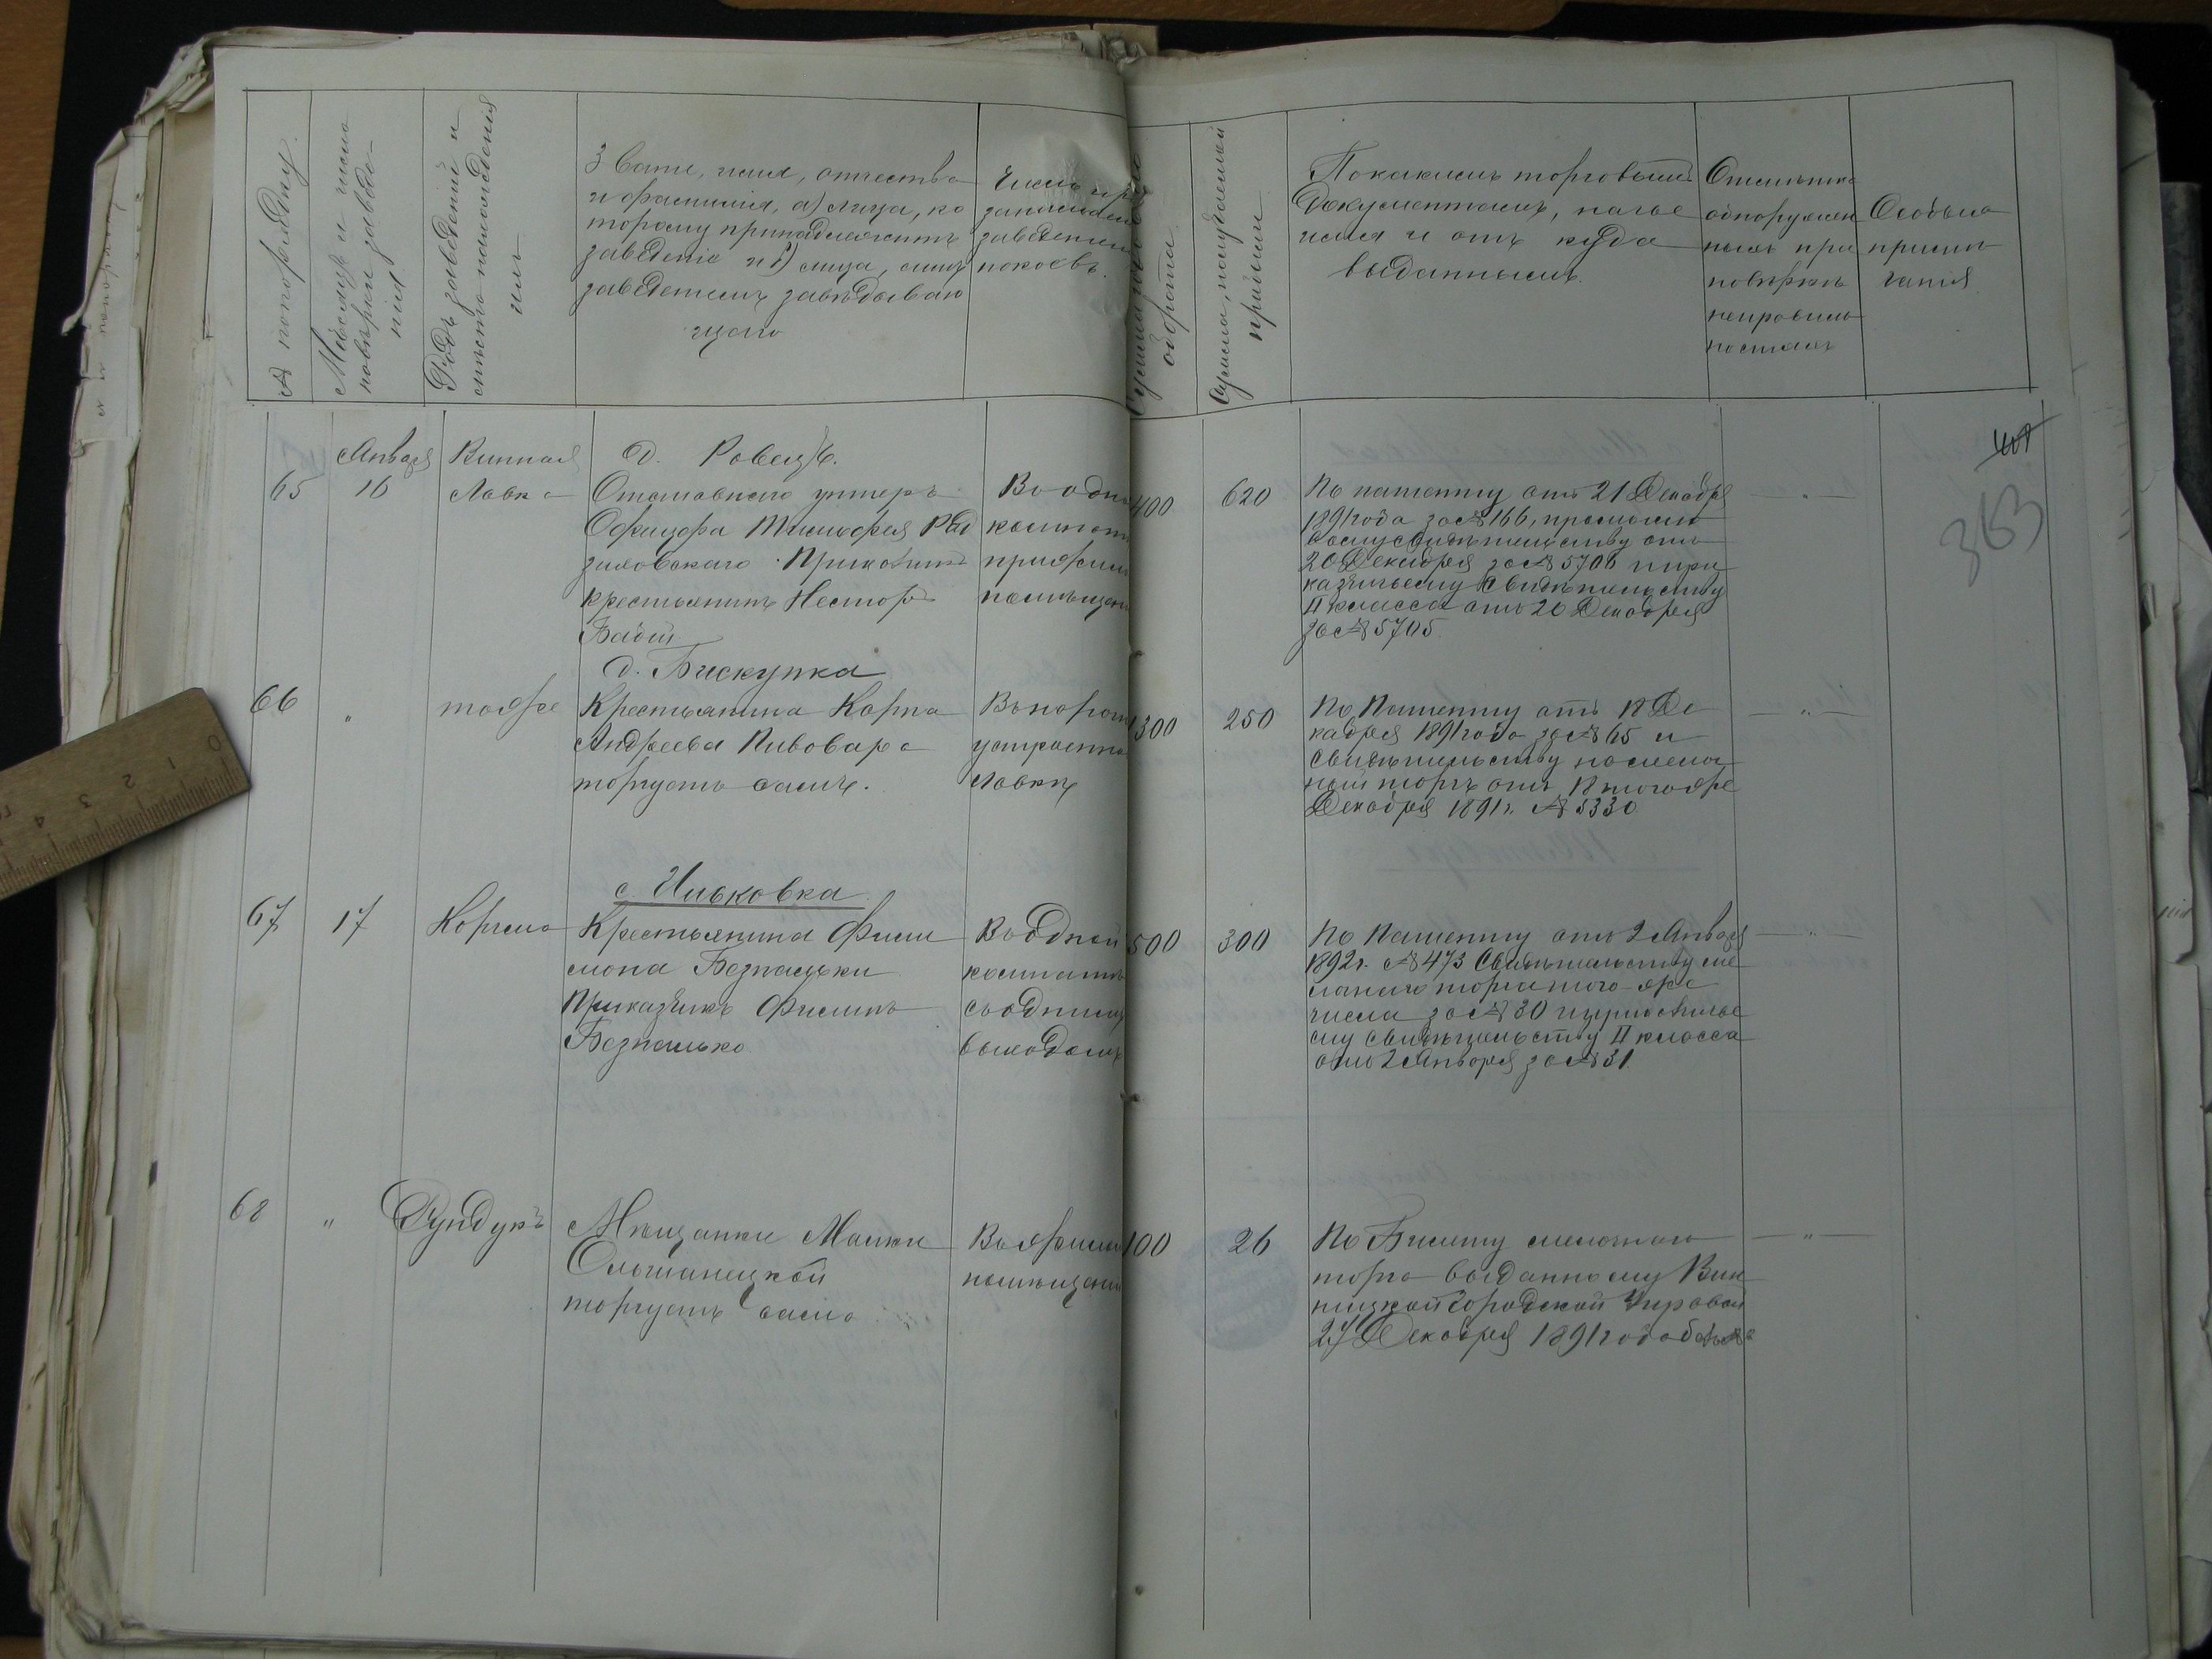 № по порядку.
Мѣсяцъ и число
повѣрки заведе-
нія
Родъ заведеній и
мѣсто нахожденія
ихъ
Званіе, имя, отчество
и фамилія, а) лица, ко
торому принадлежитъ
заведеніе и б) лица, симъ
заведеніемъ завѣдываю
щаго
Число
занимаем
заведеніем
покоевъ.
Сумма
оборота
Сумма, получаемой
прибыли
По какимъ торговымъ
документамъ, на чье
имя и отъ куда
выданнымъ.
Отмѣтка
обнаружен
ныхъ при
повѣркѣ
неправиль
ностяхъ
Особыя
примѣ
чанія
401
363
Января
Винная
д. Ровецъ.
65
16
Лавка
Отставного унтеръ
Офицера Тимофея
Прикащикъ
крестьянинъ Несторъ
Бабій
В одной
комнатѣ
при
помѣщен
400
620
По патенту отъ 21 Декабря
1891 года за № 166, промысло
вому свидѣтельству отъ
20 Декабря за № 5706 и при
казчичьему свидѣтельству
II класса отъ 20 Декабря
за № 5705.
д. Бискупка
66
"
тоже
Крестьянина Карпа
Андреева Пивовара
торгуетъ самъ.
устроенной
лавкѣ
300
250
По Патенту отъ 18 Де
кабря 1891 года за № 65 и
Свидѣтельству на мелоч
ный торгъ отъ 18 того же
Декабря 1891 г. № 5330
с. Ильковка
67
17
Корчма
Крестьянина Фили
мона Безпалько
Приказчикъ Филипъ
Безпалько
В одной
комнатѣ
съ однимъ
выходомъ
500
300
По Патенту отъ 2 Января
1892 г. № 473 Свидѣтельству ме
лочного торга того же
числа за № 30 и
му свидѣтельству II класса
отъ 2 Января за № 31.
68
"
Рундукъ
Мѣщанки Малки
Ольшанецкой
торгуетъ сама
В жиломъ
помѣщеніи
100
26
По Билету мелочного
торга выданному Вин
ницкой Городской Управой
27 Декабря 1891 года